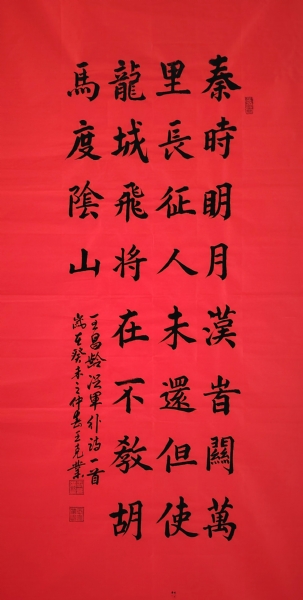 秦時眀月漢旹關萬
里長征人未還但使
龍城飛將在不教胡
馬度陰山
王昌齡從軍行詩一首
歲在癸未之仲春王克業